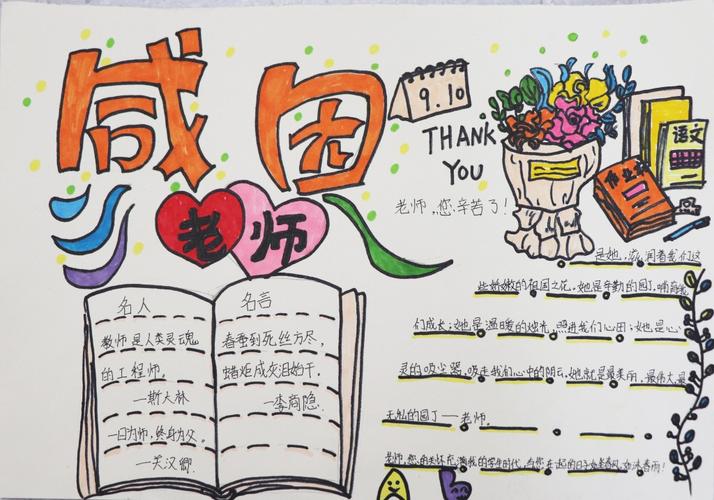 感恩
老师
9.10
THANK
YOU
老师,您辛苦了!
语文
作业本
名人
教师是人类灵魂
的工程师。
—斯大林
一日为师,终身为父。
—关汉卿
名言
春蚕到死丝方尽,
蜡炬成灰泪始干。
—李商隐
是她,滋润着我们这
些娇嫩的祖国之花,她是辛勤的园丁,哺育我
们成长;她是温暖的烛光,照进我们心田;她是心
灵的吸尘器,吸走我们心中的阴云,她就是最美丽,最伟大,最
无私的园丁——老师。
老师,您的关怀充满我的学生时代,与您在一起的日子如坐春风,如沐春雨!